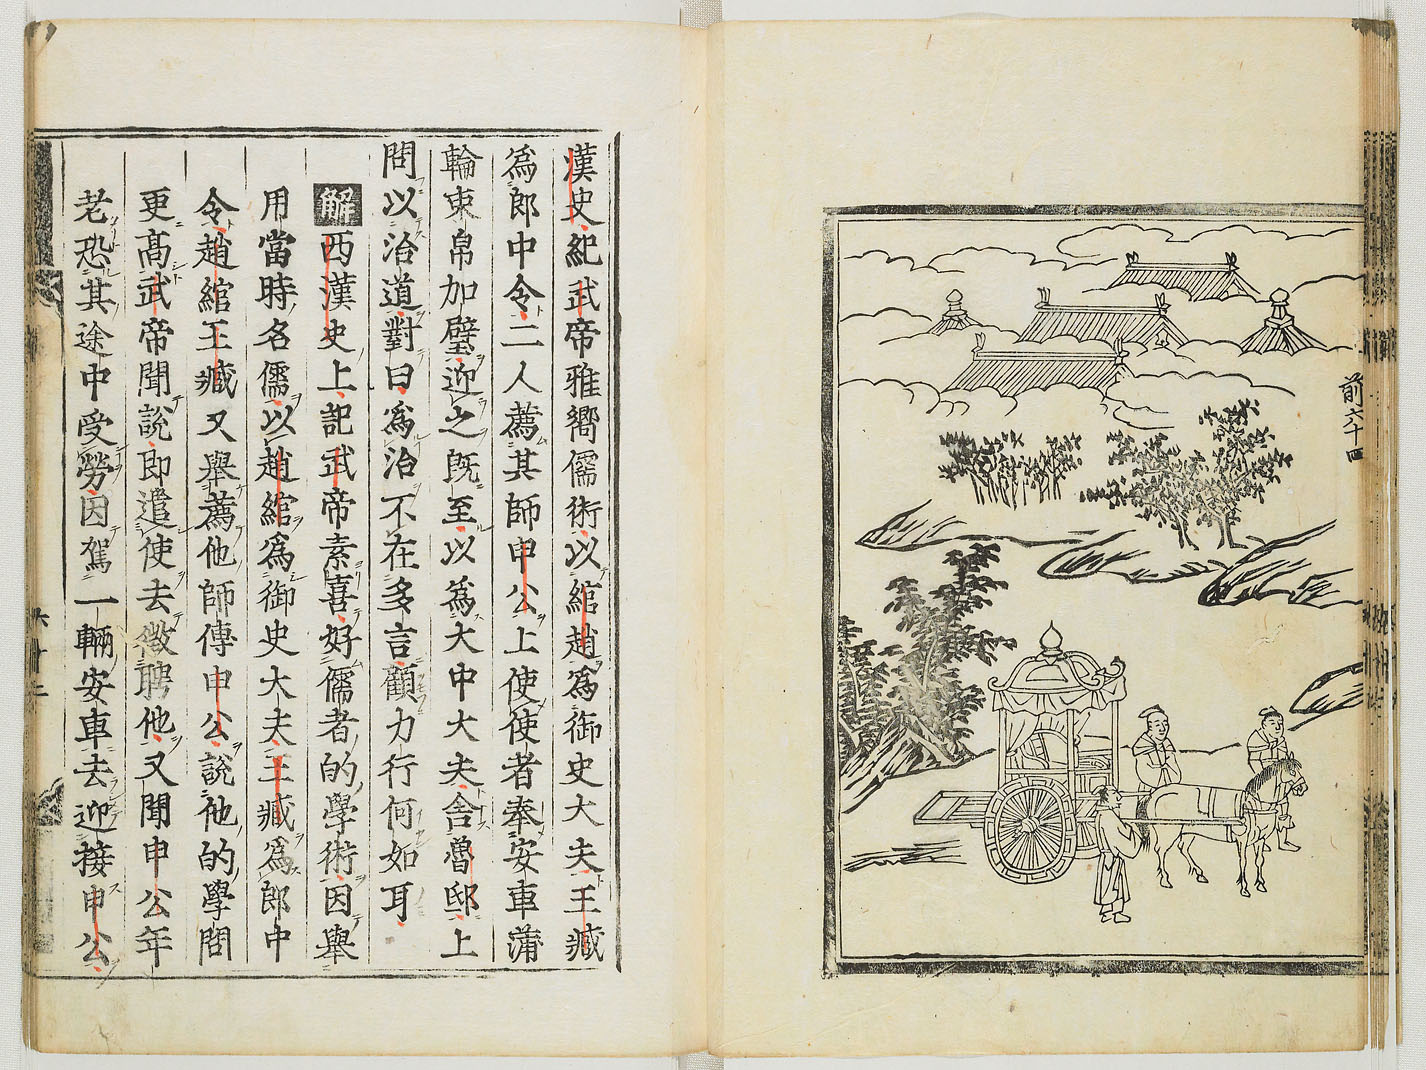 前六十四
漢史紀武帝雅嚮儒術以綰趙為御史大夫王臧
為郎中令二人薦其師申公上使使者奉安車蒲
輪束帛加璧迎之既至以為大中大夫舍魯邸上
問以治道對曰為治不在多言顧力行何如耳
解西漢史上記武帝素喜好儒者的學術因舉
用當時名儒以趙綰為御史大夫王臧為郎中
令趙綰王臧又舉薦他師傅申公說他的學問
更高武帝聞說即遣使去徵聘他又聞申公年
老恐其途中受勞因駕一輛安車去迎接申公